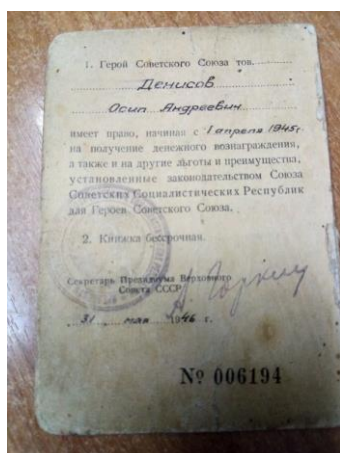 1. Герой Советского Союза тов.
Денисов
Осип Андреевич
имеет право, начиная с 1 апреля 1945 г.
на получение денежного вознаграждения,
а также и на другие льготы и преимущества,
установленные законодательством Союза
Советских Социалистических Республик
для Героев Советского Союза.
2. Книжка бессрочная.
Секретарь Президиума Верховного
Совета СССР
А. Горкин
31 мая 1946 г.
№ 006194